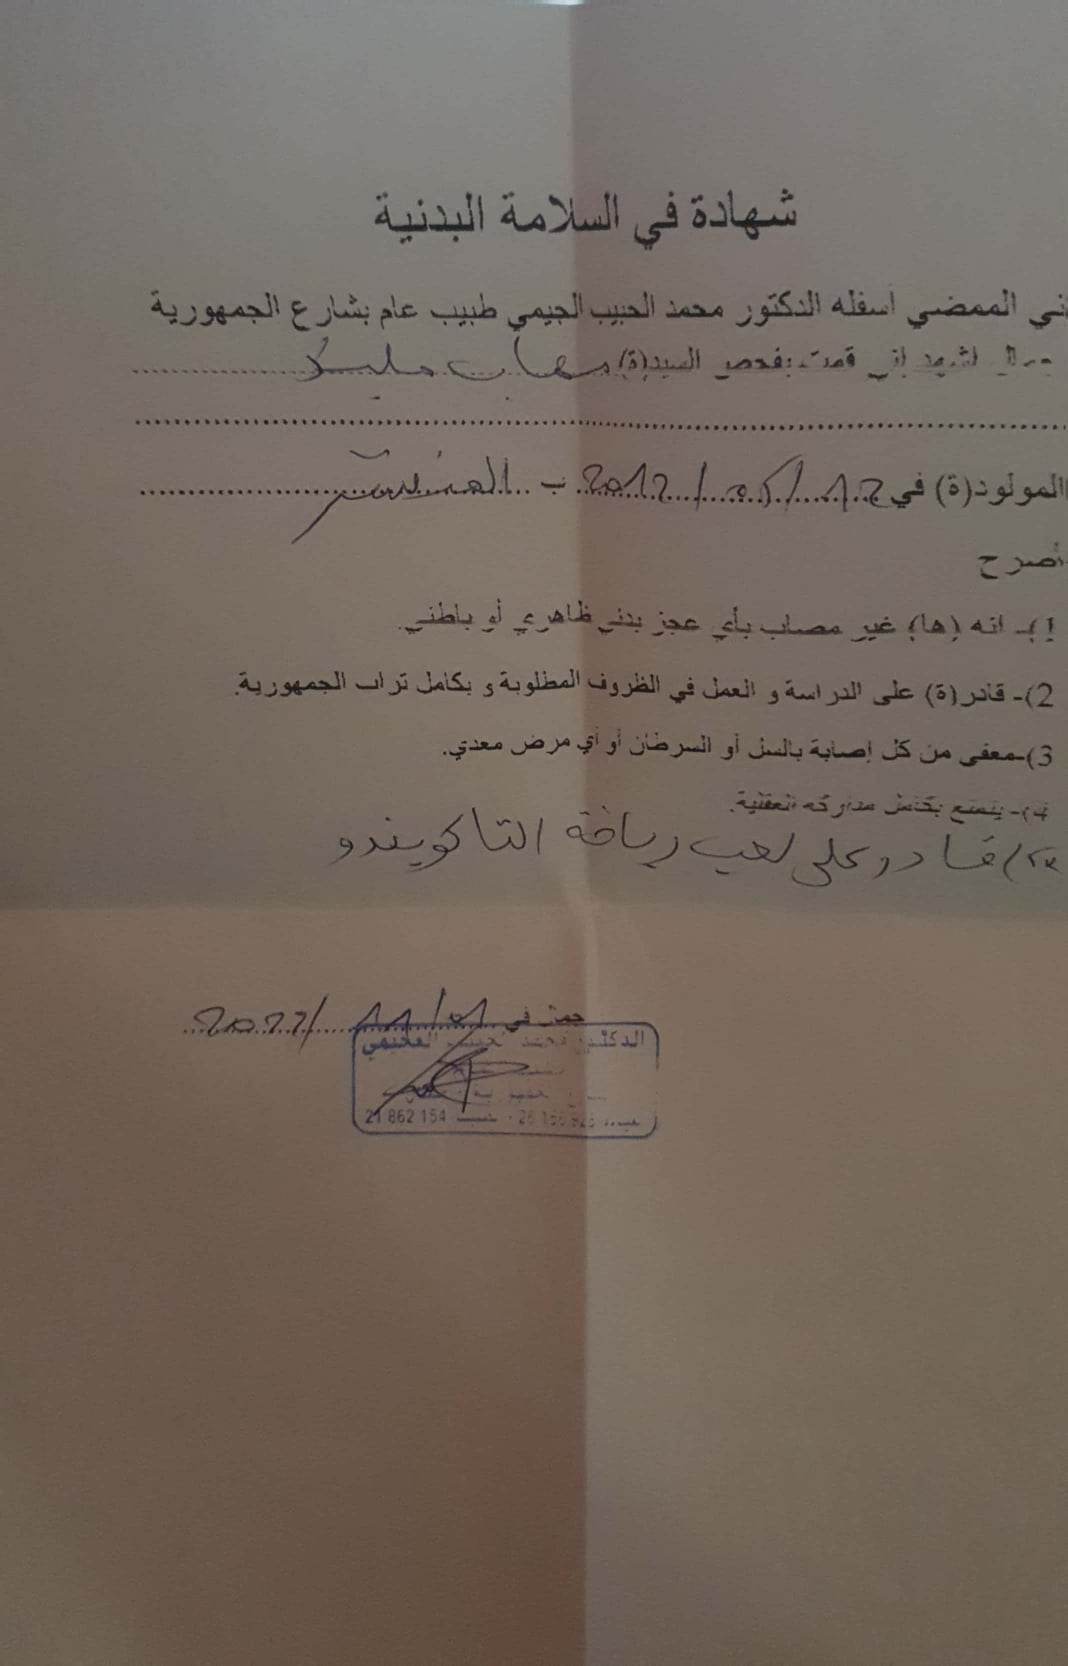 شهادة في السلامة البدنية
ني الممضي أسفله الدكتور محمد الحبيب الجيمي طبيب عام بشارع الجمهورية
جمال أشهد إني قمت بفحص السيد(ة) مهاب مليك
المولود(ة) في 12/05/2012 ب المنستير
أصرح
1)- انه (ها) غير مصاب بأي عجز بدني ظاهري أو باطني.
2)- قادر(ة) على الدراسة و العمل في الظروف المطلوبة و بكامل تراب الجمهورية.
3)-معفى من كل إصابة بالسل أو السرطان أو أي مرض معدي.
4)- يتمتع بكامل مداركه العقلية.
قادر على لعب رياضة التايكويندو
جمال في 01/11/2022
الدكتور محمد الحبيب
21 862 154